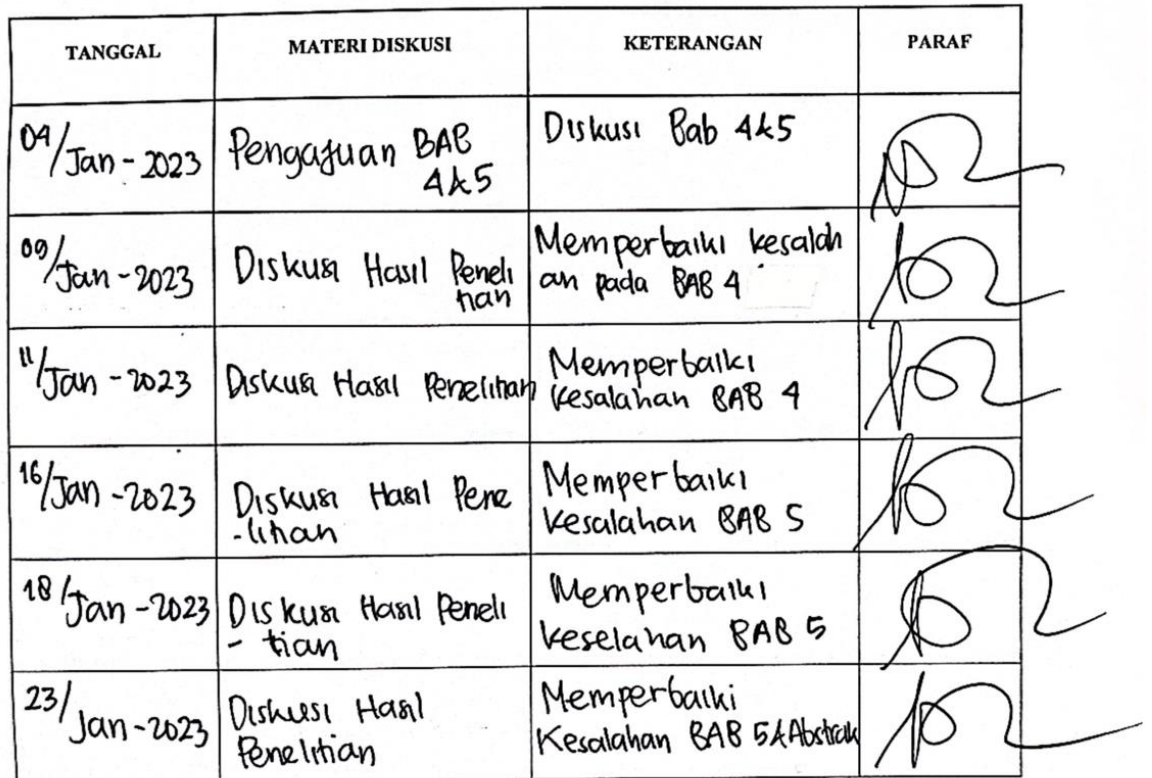 TANGGAL MATERI DISKUSI KETERANGAN PARAF
04/Jan-2023 Pengajuan BAB Diskusi Bab 4&5
4&5
09/Jan-2023 Diskusi Hasil Peneli Memperbaiki kesalah
tian an pada BAB 4
11/Jan-2023 Diskusi Hasil Penelitian Memperbaiki
kesalahan BAB 4
16/Jan-2023 Diskusi Hasil Pene Memperbaiki
-litian kesalahan BAB 5
18/Jan-2023 Diskusi Hasil Peneli Memperbaiki
- tian keselahan BAB 5
23/Jan-2023 Diskusi Hasil Memperbaiki
Penelitian Kesalahan BAB 5&Abstrak